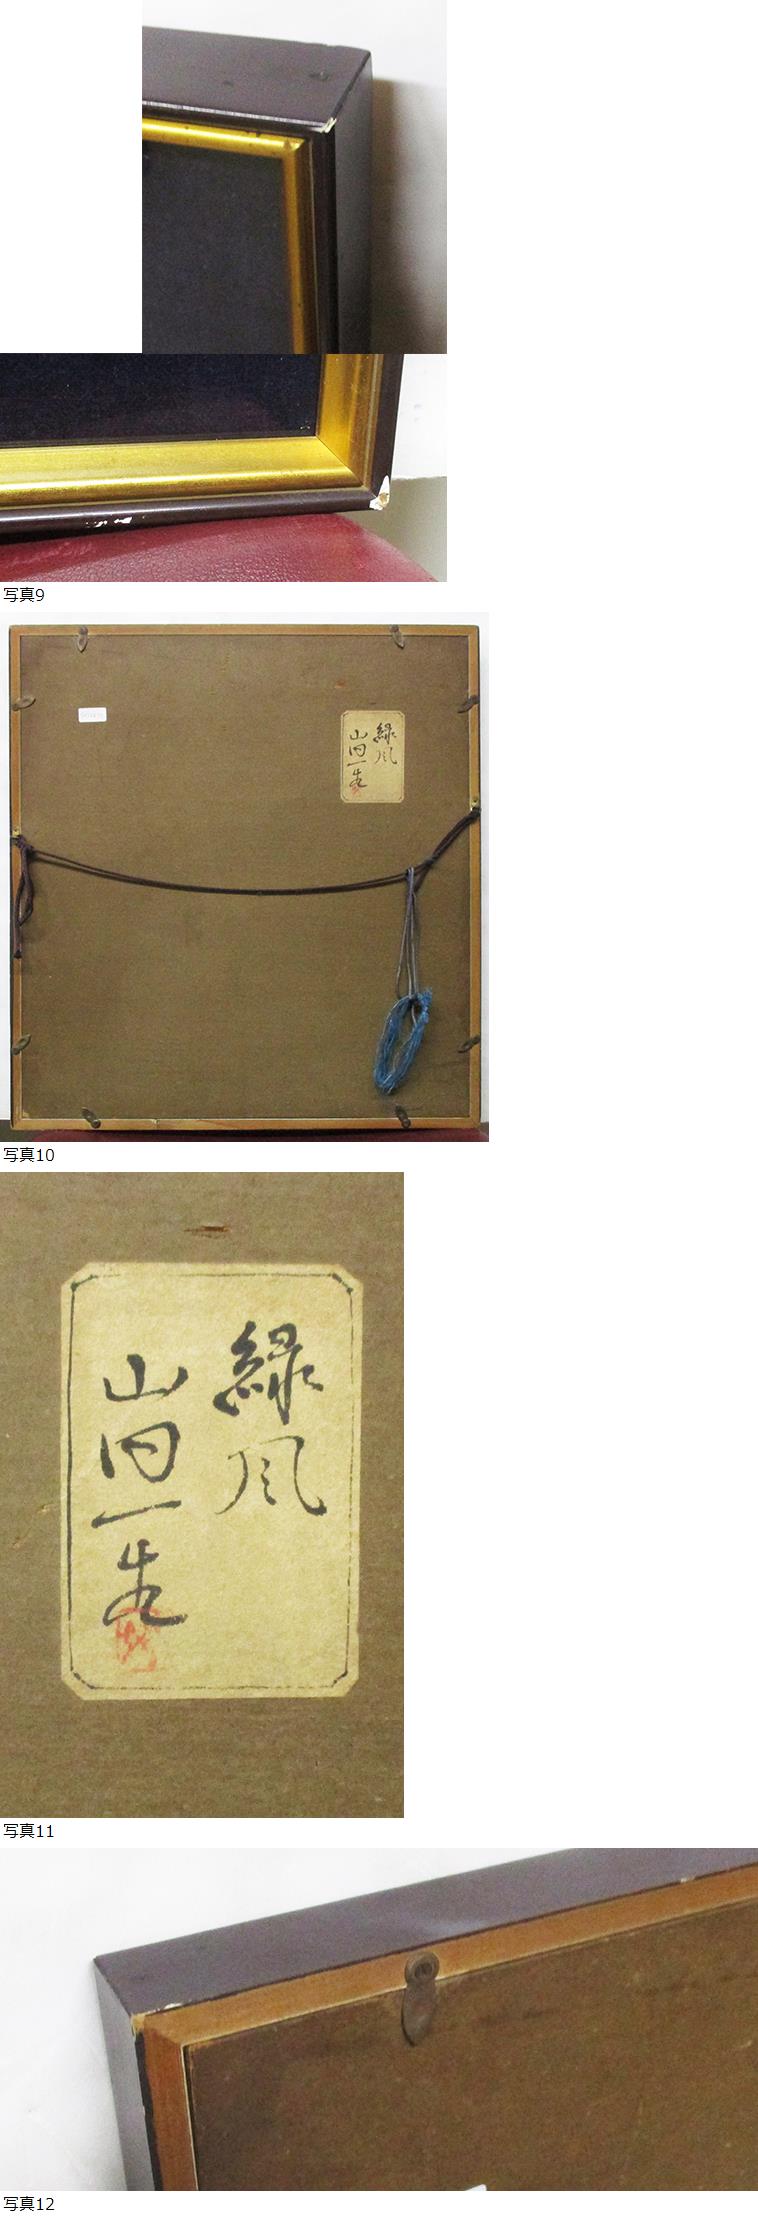 写真9
緑風
山内一生
写真10
緑風
山内一生
写真11
写真12